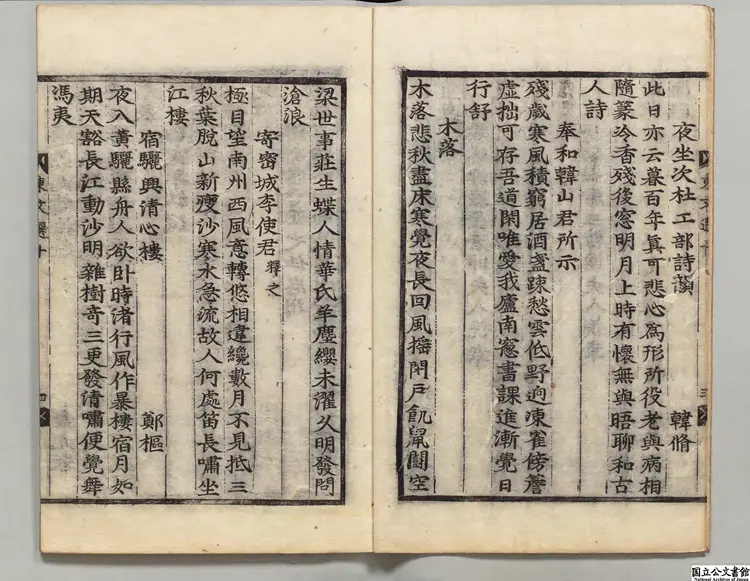 夜坐次杜工部詩韻 韓脩
此日亦云暮百年眞可悲心為形所役老與病相
隨篆冷香殘後窓明月上時有懷無與晤聊和古
人詩
奉和韓山君所示
殘歲寒風積窮居酒盞踈愁雲低野逈凍雀傍簷
虛拙可存吾道閑唯愛我廬南窓書課進漸覺日
行舒
木落
木落悲秋盡床寒覺夜長回風搖閉戶飢鼠闘空
梁世事莊生蝶人情華氏羊塵纓未濯久明發問
滄浪
寄密城李使君釋之
極目望南州西風意轉悠相違纔數月不見抵三
秋葉脫山新瘦沙寒水急流故人何處笛長嘯坐
江樓
宿驪興清心樓 鄭樞
夜入黃驪縣舟人欲卧時渚行風作暴樓宿月如
期天豁長江動沙明雜樹奇三更發清嘯便覺舞
馮夷
東文選十
四
東文選十
三
国立公文書館
National Archives of Japan